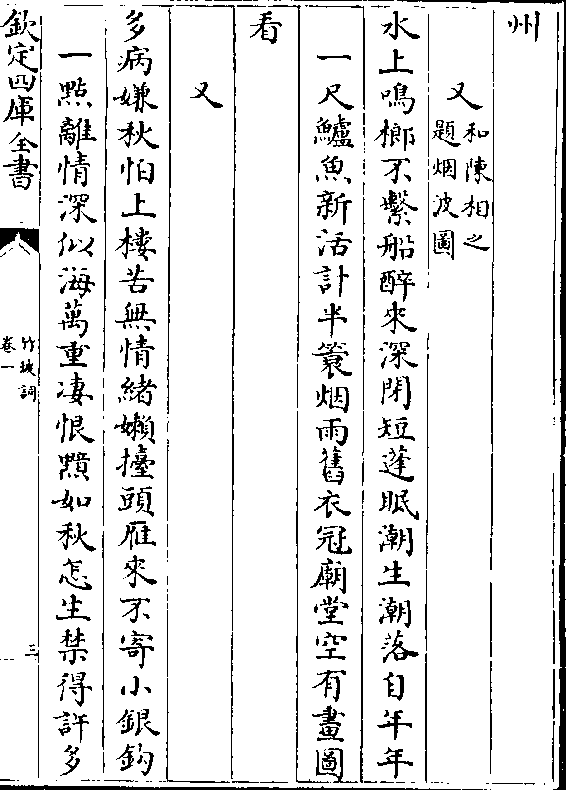 州
又和陳相之
題烟波圖
水上鳴榔不繫船醉來深閉短蓬眠潮生潮落自年年
一尺鱸魚新活計半簑烟雨舊衣冠廟堂空有畫圖
看
又
多病嫌秋怕上樓苦無情緒懶擡頭雁來不寄小銀鈎
一點離情深似海萬重凄恨黰如秋怎生禁得許多
欽定四庫全書
竹坡詞
卷一
三